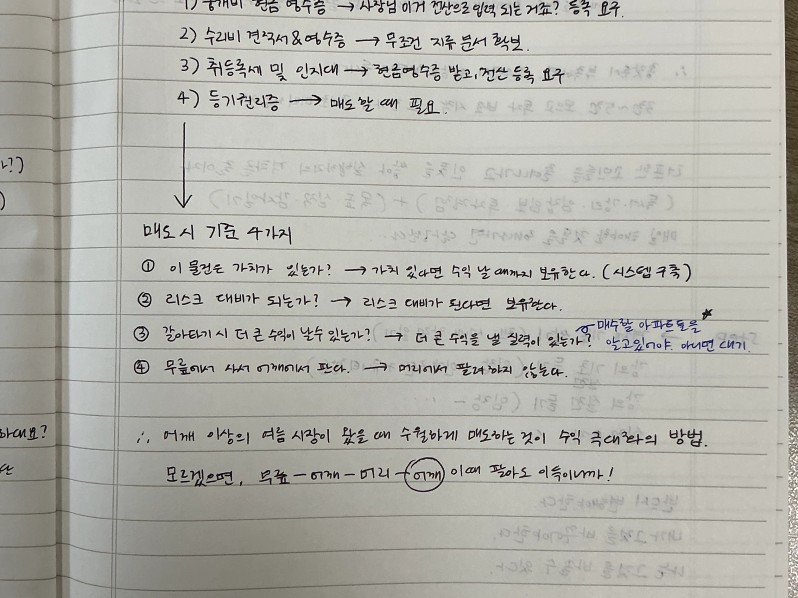 1) 중개비 현금 영수증 → 사장님 이거 전산으로 입력 되는 거죠? 등록 요구.
2) 수리비 견적서&영수증 → 무조건 지류 문서 확보.
3) 취등록세 및 인지대 → 현금영수증 받고, 전산 등록 요구
4) 등기권리증 → 매도할 때 필요.
매도 시 기준 4가지
① 이 물건은 가치가 있는가? → 가치 있다면 수익 날 때까지 보유한다. (시스템 구축)
② 리스크 대비가 되는가? → 리스크 대비가 된다면 보유한다.
③ 갈아타기 시 더 큰 수익이 날수 있는가? → 더 큰 수익을 낼 실력이 있는가?
매수할 아파트도을
알고있어야. 아니면 대기.
④ 무릎에서 사서 어깨에서 판다. → 머리에서 팔려 하지 않는다.
∴ 어깨 이상의 여름 시장이 왔을 때 수월하게 매도하는 것이 수익 극대화의 방법.
모르겠으면, 무릎 - 어깨 - 머리 - 어깨 이때 팔아도 이득이니까!